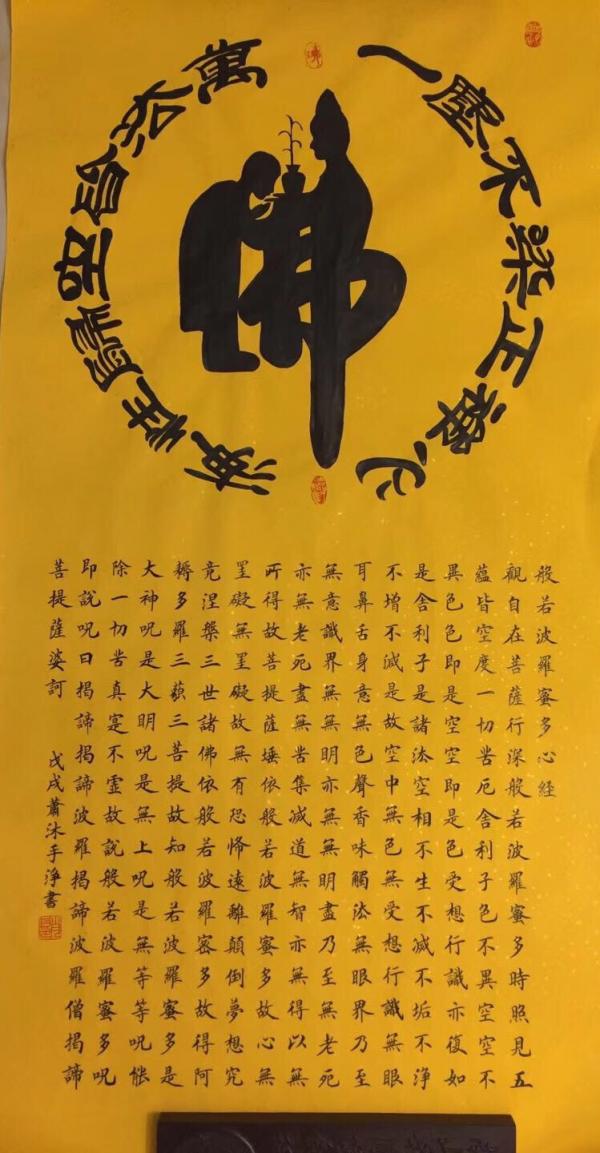 一塵不染正禪心
萬法皆空歸性海
佛
般若波羅蜜多心経
觀自在菩薩行深般若波羅蜜多時照見五
蘊皆空度一切苦厄舍利子色不異空空不
異色色即是空空即是色受想行識亦復如
是舍利子是諸法空相不生不滅不垢不淨
不增不減是故空中無色無受想行識無眼
耳鼻舌身意無色聲香味觸法無眼界乃至
無意識界無無明亦無無明盡乃至無老死
亦無老死盡無苦集滅道無智亦無得以無
所得故菩提薩埵依般若波羅蜜多故心無
罣礙無罣礙故無有恐怖遠離顛倒夢想究
竟涅槃三世諸佛依般若波羅密多故得阿
耨多羅三藐三菩提故知般若波羅蜜多是
大神呪是大明呪是無上呪是無等等呪能
除一切苦真寔不虛故說般若波羅蜜多呪
即說呪曰揭諦揭諦波羅揭諦波羅僧揭諦
菩提薩婆訶
戊戌蕭沐手淨書